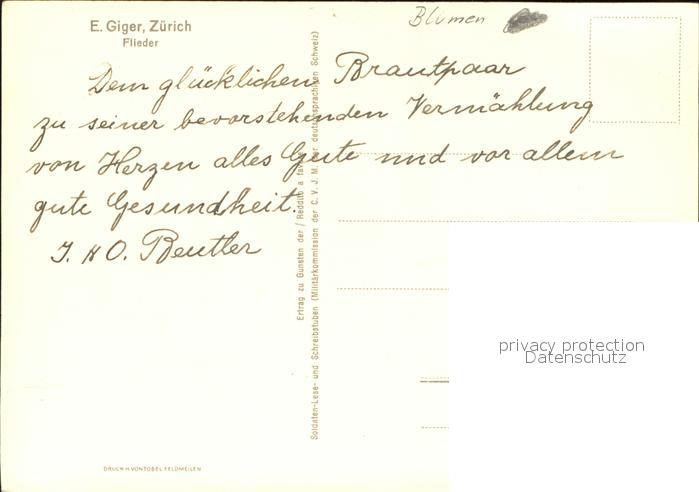 E. Giger, Zürich
Flieder
Blumen
Dem glücklichen Brautpaar
zu seiner bevorstehenden Vermählung
von Herzen alles Gute und vor allem
gute Gesundheit.
J. & O. Beutler
Ertrag zu Gunsten der / Reddito a fav
Soldaten-Lese- und Schreibstuben (Militärkommission der C. V. J. M. der deutschsprachigen Schweiz)
privacy protection
Datenschutz
DRUCK H. VONTOBEL FELDMEILEN